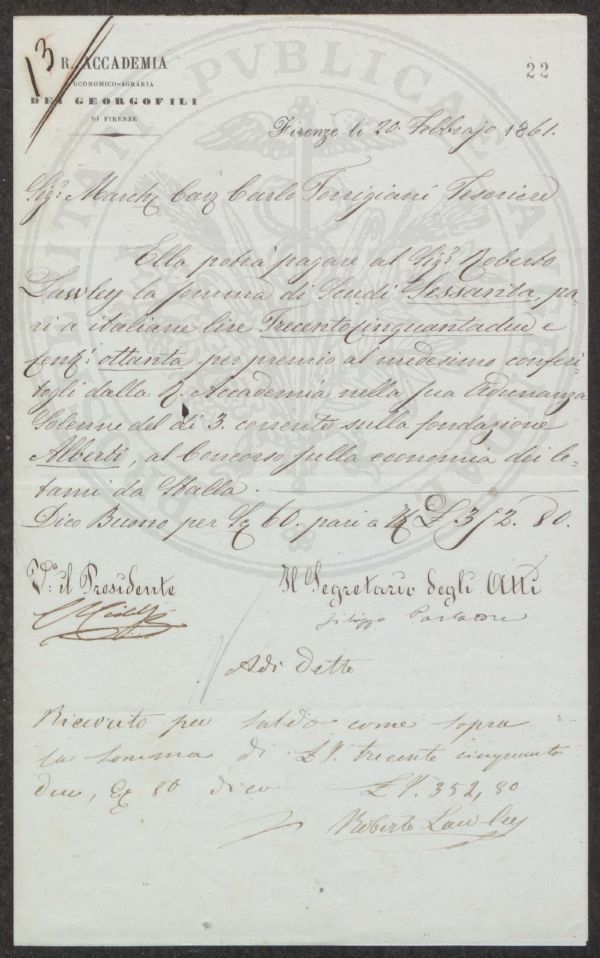 13
R. ACCADEMIA
ECONOMICO-AGRARIA
DEI GEORGOFILI
DI FIRENZE
22
Firenze li 20. Febbrajo 1861.
Sigr. March Cav Carlo Torrigiani Tesoriere
Ella potrà pagare al Sigr. Roberto
Lawley la somma di Scudi Sessanta, pa-
ri a italiane lire Trecentocinquantadue e
Centi: ottanta per premio al medesimo conferi-
togli dalla R. Accademia nella sua Adunanza
Solenne del dì 3. corrente sulla fondazione
Alberti, al Concorso sulla economia dei le-
tami da Stalla.
Dico Buono per Sc 60. pari a £ 352. 80.
V.° il Presidente
Il Segretario degli Atti
Filippo Parlatore
Adi Detto
Ricevuto per saldo come sopra
la somma di trecento cinquanta
due, 80 dico 352,80
Roberto Lawley
PROSPERITATI PVBLICAE AVGENDAE